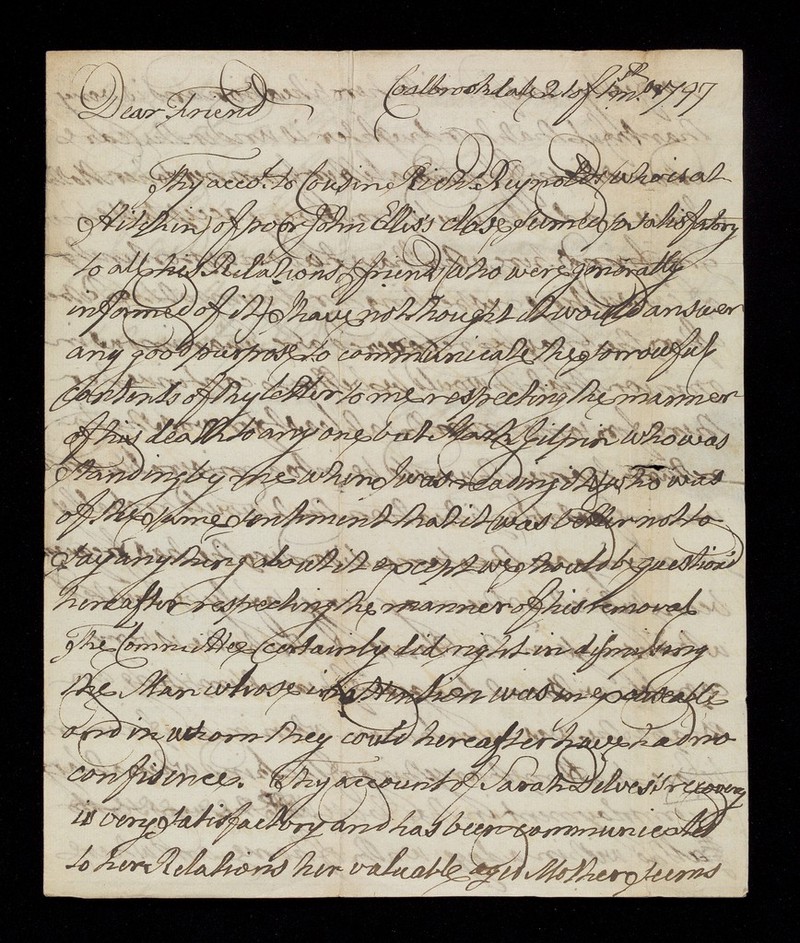 Coalbrookdale 21 of 1797
Dear Friend
Thy acco.t to Cousin Rich.d Reynolds (who is at
Hitchin) of poor John Ellis's close seemed satisfactory
to all his Relations & friends who were generally
informed of it, I have not thought it would answer
any good purpose to communicate the sorrowful
contents of thy letter to me respecting the manner
of his death to any one but Mark Gilpin who was
standing by me when I was reading it & who was
of the same sentiment that it was better not to
say any thing about it except we should be question'd
hereafter respecting the manner of his removal
The Committee Certainly did right in dismissing
the Man whose inattention was inexcusable
and in whom they could hereafter have had no
confidence. Thy account of Sarah Delves's recovery
is very satisfactory and has been communicated
to her Relations her valuable aged Mother seems